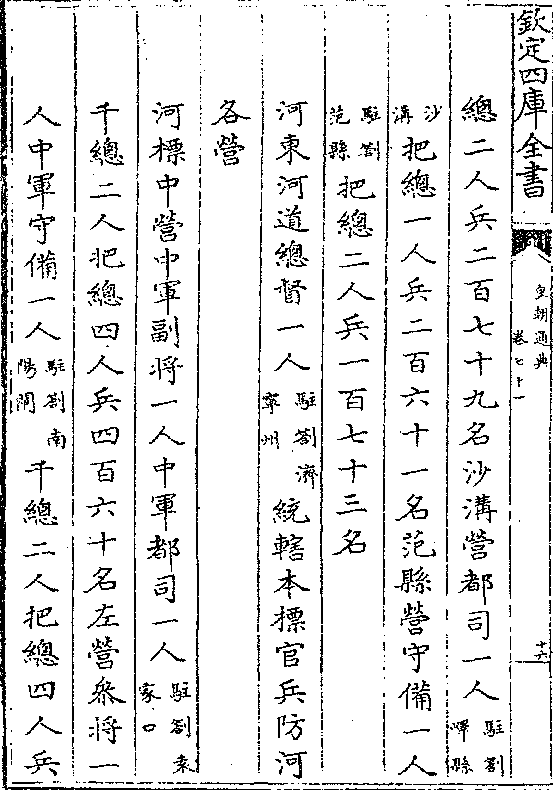 欽定四庫全書
皇朝通典
卷七十一
十六
總二人兵二百七十九名沙溝營都司一人駐劄嶧縣
沙溝把總一人兵二百六十一名范縣營守備一人
駐劄范縣把總二人兵一百七十三名
河東河道總督一人駐劄濟寧州統轄本標官兵防河
各營
河標中營中軍副將一人中軍都司一人駐劄袁家口
千總二人把總四人兵四百六十名左營叅將一
人中軍守備一人駐劄南陽閘千總二人把總四人兵